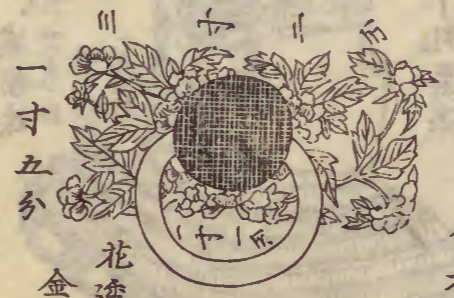 三寸二分
一寸五分
一寸一分
花透
金